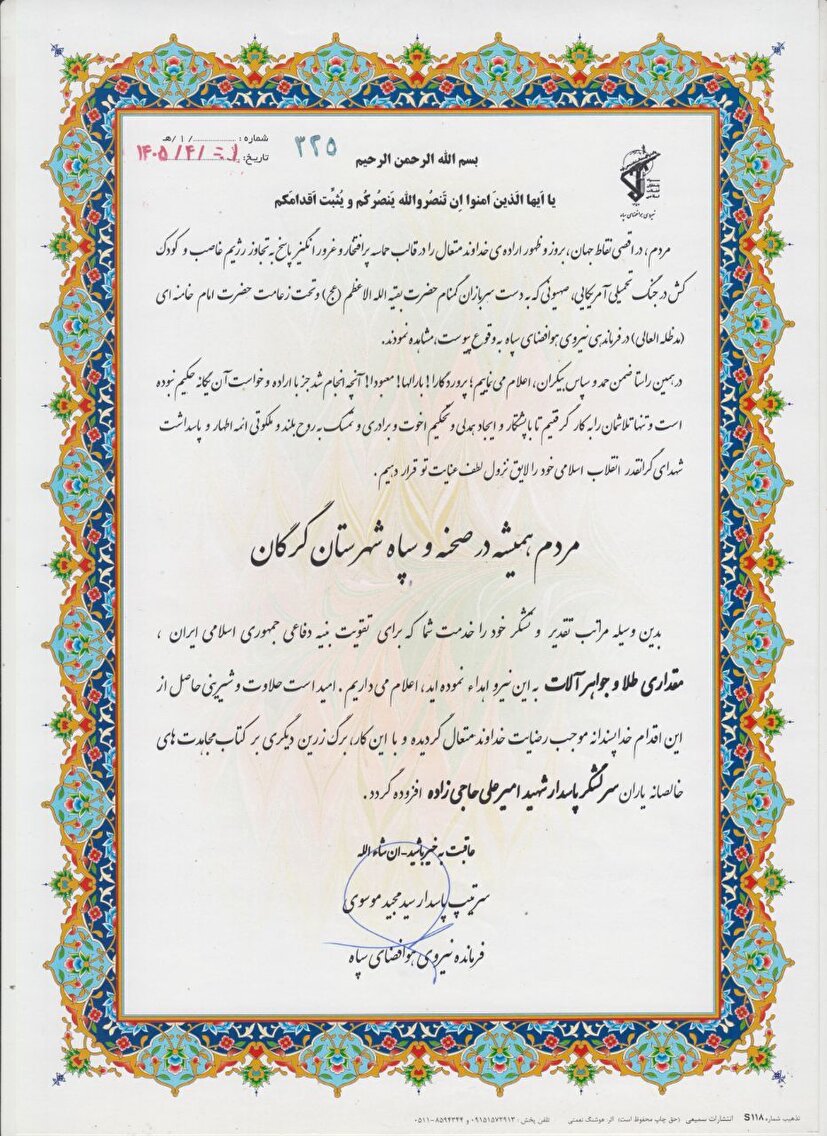 شماره : ............../ ۱ /هـ
۳۲۵
تاریخ:
بسم الله الرحمن الرحیم
نیروی هوافضای سپاه
یا اَیها الَّذینَ امنوا اِن تَنصُروالله یَنصُرکُم و یُثبِّت اَقدامَکم
مردم، در اقصی نقاط جهان، بروز و ظهور اراده ی خداوند متعال را در قالب حماسه پرافتخار و غرور انگیز پاسخ به تجاوز رژیم غاصب و کودک
کش در جنگ تحمیلی آمریکایی، صهیونی که به دست سربازان گمنام حضرت بقیه الله الاعظم (عج) و تحت زعامت حضرت امام خامنه ای
(مدظله العالی) در فرماندهی نیروی هوافضای سپاه به وقوع پیوست، مشاهده نمودند.
در همین راستا ضمن حمد و سپاس بیکران، اعلام می نماییم؛ پروردگارا! بارالها! معبودا! آنچه انجام شد جز با اراده و خواست آن یگانه حکیم نبوده
است و تنها تلاشمان را به کار گرفتیم تا با پشتکار و ایجاد همدلی و تحکیم اخوت و برادری و تمسک به روح بلند و ملکوتی ائمه اطهار و پاسداشت
شهدای گرانقدر انقلاب اسلامی خود را لایق نزول لطف عنایت تو قرار دهیم .
مردم همیشه در صحنه و سپاه شهرستان گرگان
بدین وسیله مراتب تقدیر و تشکر خود را خدمت شما که برای تقویت بنیه دفاعی جمهوری اسلامی ایران ،
مقداری طلا و جواهر آلات به این نیرو اهداء نموده اید، اعلام می داریم . امید است حلاوت و شیرینی حاصل از
این اقدام خداپسندانه موجب رضایت خداوند متعال گردیده و با این کار، برگ زرین دیگری بر کتاب مجاهدت های
خالصانه یاران سرلشگر پاسدار شهید امیرعلی حاجی زاده افزوده گردد .
عاقبت به خیر باشید - ان شاء الله
سرتیپ پاسدار سید مجید موسوی
فرمانده نیروی هوافضای سپاه
تذهیب شماره S۱۱۸ انتشارات سمیعی (حق چاپ محفوظ است) اثر هوشنگ نعمتی تلفن پخش : ۰۹۱۵۱۵۷۳۹۱۳ و ۸۵۹۴۳۴۴-۰۵۱۱